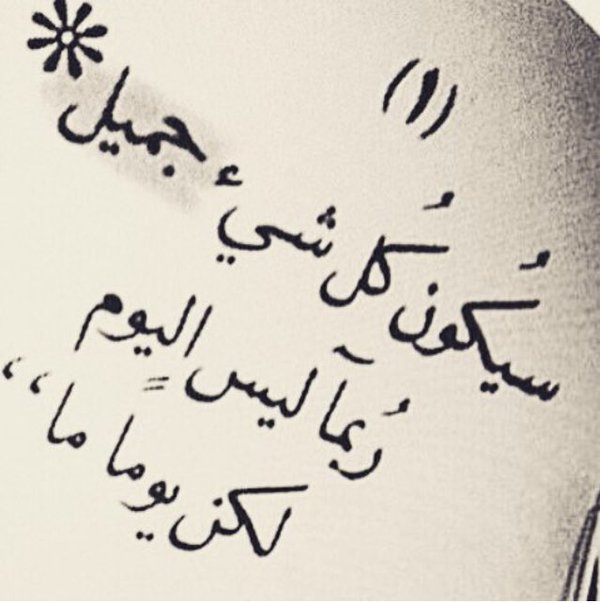 (١)
سُيكون كُل شيءٍ جميل
رُبمآ ليس اليوم
لكن يوماً ما،،